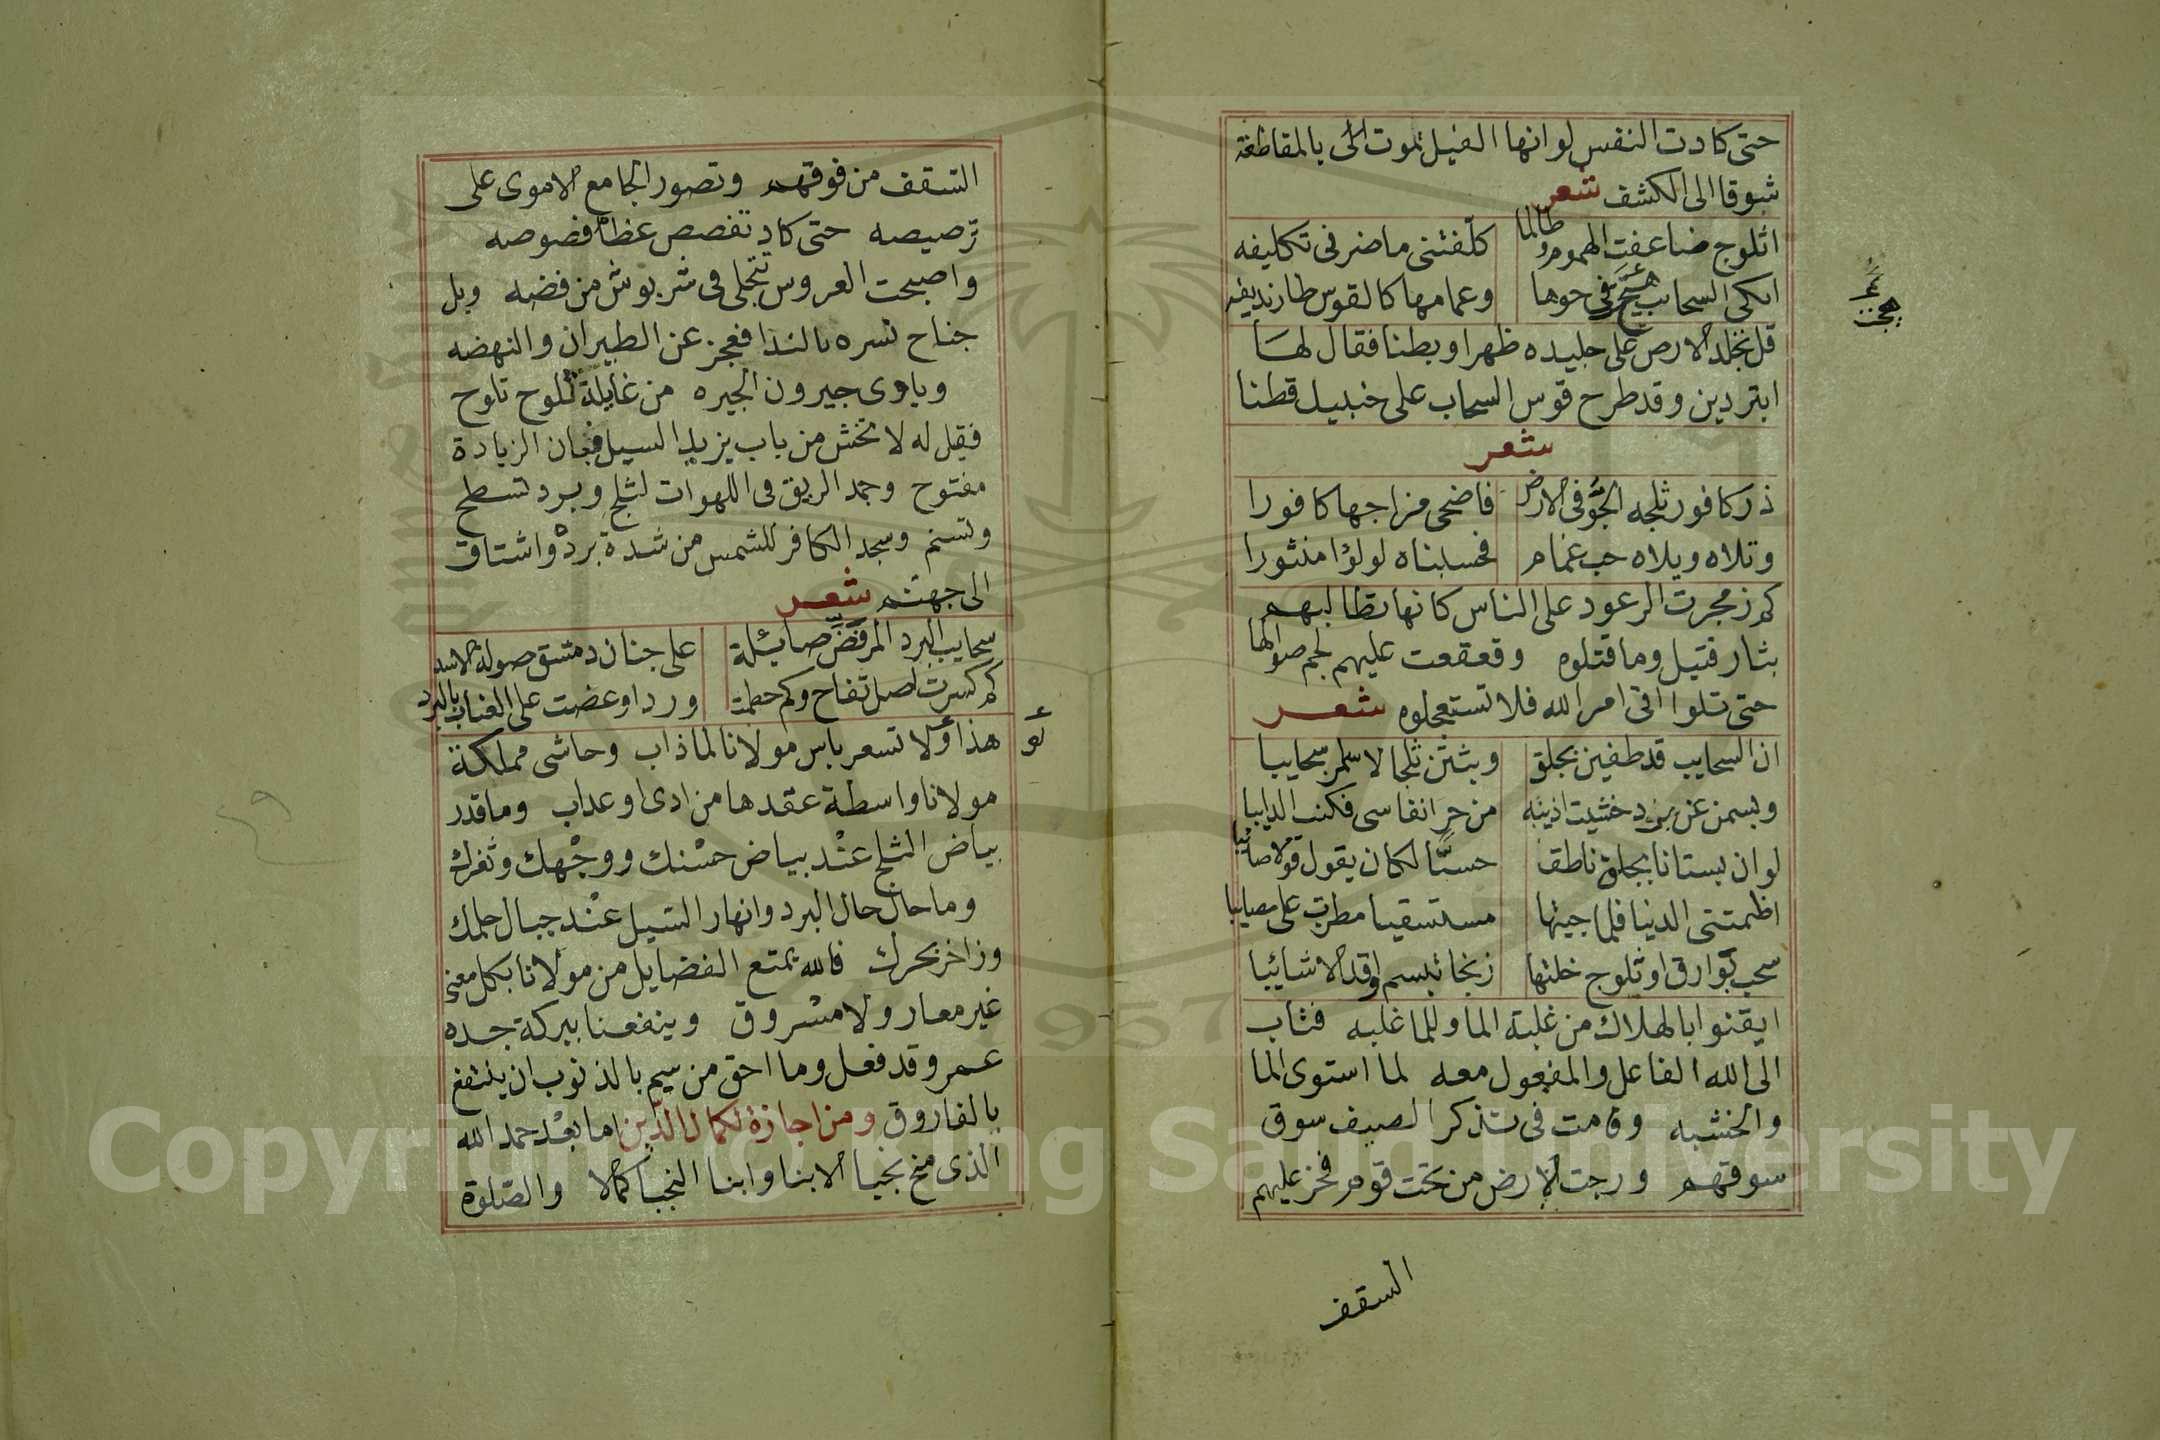 حتى كادت النفس لو انها الفيل تموت الى بالمقاطعة
شوقا الى الكشف شعر
اثلوج ضاعفت الهموم وطالما كلفتنى ما ضر فى تكليفه
ابكى السحاب فى جوها وعمامها كالقوس طار نديفه
عـ
هيجت
قل تجلد الارض على جليده ظهرا وبطنا فقال لها
ابتردين وقد طرح قوس السحاب على خنبيل قطنا
شعر
ذر كافور ثلجه الجو فى الارض فاضحى مزاجها كافورا
وتلاه ويلاه حب غمام فحسبناه لولوا منثورا
كم زمجرت الرعود على الناس كانها تطالبهم
بثار قتيل وما قتلوه وقعقعت عليهم لجم صوالها
حتى تلوا اتى امر الله فلا تستعجلوه شعر
ان السحايب قد طفين بجلق وبثثن ثلجا لا سلمن سحايبا
وبسمن عن برد خشيت اذيبه من حر انفاسى فكنت الدايبا
لو ان بستانا بجلق ناطق حسا لكان يقول قولا صائبا
اظمتنى الدنيا فلما جيتها مستسقيا مطرت على مصايبا
سحب بوارق او ثلوج خلتها زنجا تبسم او قذالا شائبا
ايقنوا بالهلاك من غلبة الما وللما غلبه فتاب
الى الله الفاعل والمفعول معه لما استوى الما
والخشبه وقامت فى تذكر الصيف سوق
سوقهم ورجت الارض من تحت قوم فخر عليهم
السقف
السقف من فوقهم وتصور الجامع الاموى على
ترصيصه حتى كاد تفصص عظام فصوصه
واصبحت العروس تتجلى فى شربوش من فضه وبل
جناح نسره بالندا فعجز عن الطيران والنهضه
وياوى جيرون الجيره من غايلة ثلوح تلوح
فقيل له لا تخش من باب يزيد السيل فبان الزيادة
مفتوح وجمد الريق فى اللهوات لثلج وبرد تسطح
وتسنم وسجد الكافر للشمس من شدة برده واشتاق
الى جهنم شعر
سحايب البرد المرفض صايلة على جنان دمشق صولة الاسد
كم كسرت اصل تفاح وكم حطمت وردا وعضت على العناب بالبرد
هذا ولا تسعر باس مولانا لما ذاب وحاشى مملكة
مولانا واسطة عقدها من اذى او عداب وما قدر
بياض الثلج عند بياض حسنك ووجهك وثغرك
وما حال حال البرد وانهار السيل عند جبال حلمك
وزاخر بحرك فالله يمتع الفضايل من مولانا بكل معنى
غير معار ولا مسروق وينفعنا ببركة جده
عمر وقد فعل وما احق من سيم بالذنوب ان ينتفع
بالفاروق ومن اجازة لكمال الدين اما بعد حمد الله
الذى منح نجبا الابنا وابنا النجبا كمالا والصلوة